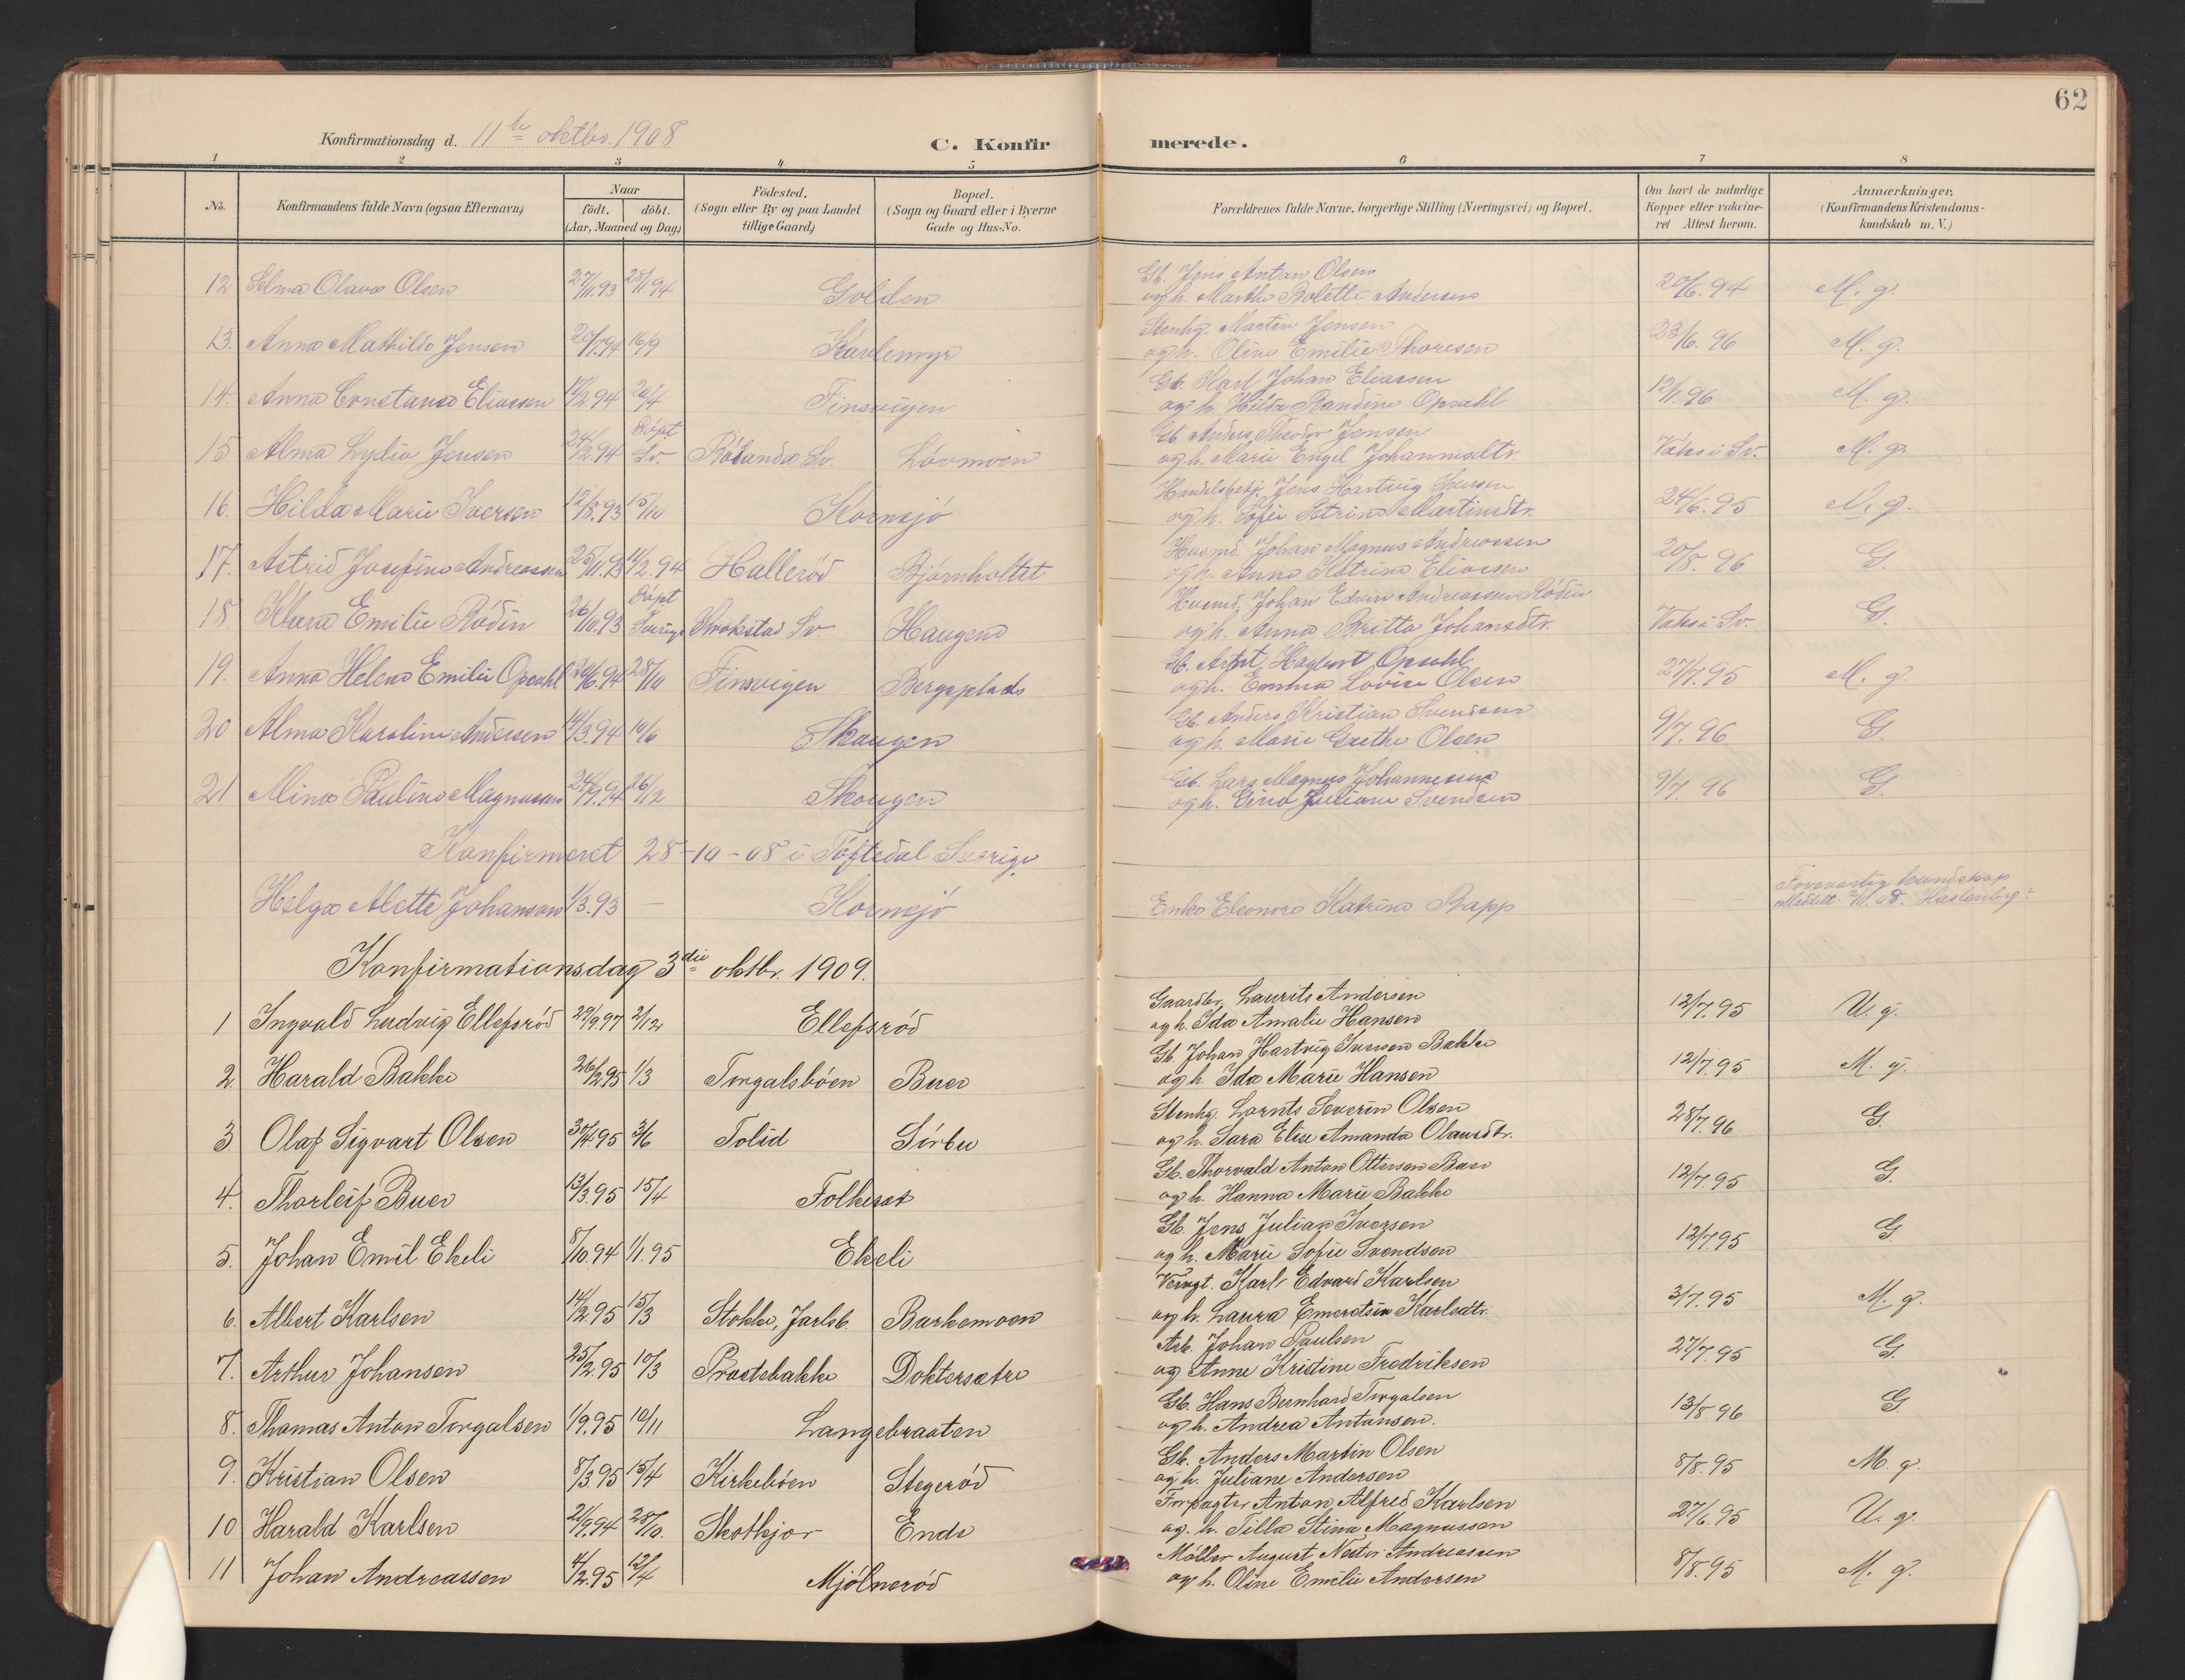 62
Konfirmationsdag d. 11te oktbr. 1908
C. Konfirmerede.
1 2 3 4 5 6 7 8
No.
Konfirmandens fulde Navn (ogsaa Efternavn)
Naar
födt. döbt.
(Aar, Maaned og Dag)
Födested.
(Sogn eller By og paa Landet
tillige Gaard)
Bopæl.
(Sogn og Gaard eller i Byerne
Gade og Hus-No.
Forældrenes fulde Navne, borgerlige Stilling (Næringsvei) og Bopæl.
Om havt de naturlige
Kopper eller vakcine-
ret Attest herom.
Anmærkninger,
(Konfirmandens Kristendoms-
kundskab m. V.)
12 Selma Olava Olsen 27/11.93 28/1 94 Golden Gb. Jens Antan Olsen
og h. Marthe Bolette Andersen 20/6.94 M. g.
13. Anna Mathilde Jensen 20/7.94 16/9 Karlemyr Stenhg. Martin Jensen
og h. Oline Emilie Thoresen 23/6.96 M. g.
14. Anna Constanse Eliassen 17/2.94 20/4 Finsvigen Gb. Karl Johan Eliassen
og h. Hilda Randine Opsahl 12/1.96 M. g.
15 Alma Lydia Jensen 24/2.94 Döpt Sv. Rölanda Sv. Lövmoen Gb. Anders Theodor Jensen
og h. Marie Engel Johannesdtr. Vaks i Sv. M. g.
16. Hilda Marie Iversen 12/8.93 15/10 Kornsjö Handelsbetj. Jens Hartvig Iversen
og h. Sofie Petrine Martinsdtr. 24/6.95 M. g.
17. Astrid Josefine Andreassen 25/11.93 11/2.94 Halleröd Björnholtet Husmd. Johan Magnus Andreassen
og h. Anna Katrine Eliassen 20/8.96 G.
18. Klara Emilie Rödin 26/10.93 Döpt Sverige Krokstad Sv. Haugene Husmd. Johan Edvin Andreassen Rödin
og h. Anna Britta Johansdtr. Vaks i Sv. G.
19. Anna Helene Emilie Opsahl 20/6.94 28/10 Finsvigen Bergsplads Gb. Artnt Hagbart Opsahl
og h. Emma Lovise Olsen 27/7.95 M. g.
20 Alma Karoline Andersen 14/3.94 10/6 Skaugen Gb. Anders Kristian Svendsen
og h. Marie Grethe Olsen 9/7.96 G.
21 Mina Pauline Magnussen 24/9.94 26/12 Skougen Gb. Lars Magnus Johannessen
og h. Gina Juliane Svendsen 9/7 96 G.
Konfirmeret 28-10-08 i Töftedal Sverige
Helga Alette Johansen 1/3.93 — Kornsjö Enke Eleonore Katrine Rapp — — Forsvarlig kundskap
Meddelt 2/11.08. Haslenby
Konfirmationsdag 3die oktbr. 1909.
1 Ingvald Ludvig Ellefsröd 29/9.97 2/12 Ellefsröd Gaardbr. Laurits Andersen
og h. Ida Amalie Hansen 12/7.95 U. g.
2. Harald Bakke 26/2.95 1/3 Torgalsböen Buer Gb. Johan Hartvig Iversen Bakke
og h. Ida Marie Hansen 12/7.95 M. g.
3. Olaf Sigvart Olsen 30/4.95 3/6 Tolid Sörbu Stenhg. Lornts Severin Olsen
og h. Sara Elise Amanda Olausdtr. 28/7.96 G.
4. Thorleif Buer 13/3.95 15/4 Folkeset Gb. Thorvald Anton Ottersen Buer
og h. Hanna Marie Bakke 12/7.95 G.
5. Johan Emil Ekeli 8/10.94 1/1.95 Ekeli Gb. Jens Julian Iversen
og h. Marie Sofie Svendsen 12/7.95 G
6. Albert Karlsen 14/2.95 15/3 Stokke, Jarlsb. Barkemoen Vervgt. Karl Edvard Karlsen
og h. Laura Emeretsin Karlsdtr. 3/7.95 M. g.
7. Arthur Johansen 25/2.95 10/3 Prestebakke Doktersætre Arb. Johan Paulsen
og Anne Kristine Fredriksen 27/7.95 G.
8. Thomas Anton Torgalsen 1/9.95 10/11 Langebraaten Gb. Hans Bernhard Torgalsen
og h. Andrea Antonsen. 13/8.96 G
9. Kristian Olsen 8/3.95 15/4 Kirkeböen Stegeröd Gb. Anders Martin Olsen
og h. Juliane Andersen 8/8.95 M. g.
10 Harald Karlsen 21/9.94 28/10. Skotkjær Ende Forpagter Anton Alfred Karlsen
og h. Tilla Stina Magnussen 27/6.95 U. g.
11 Johan Andreassen 4/2.95 12/4 Mjölneröd Möller August Nestor Andreassen
og h. Oline Emilie Andersen 8/8.95 M. g.